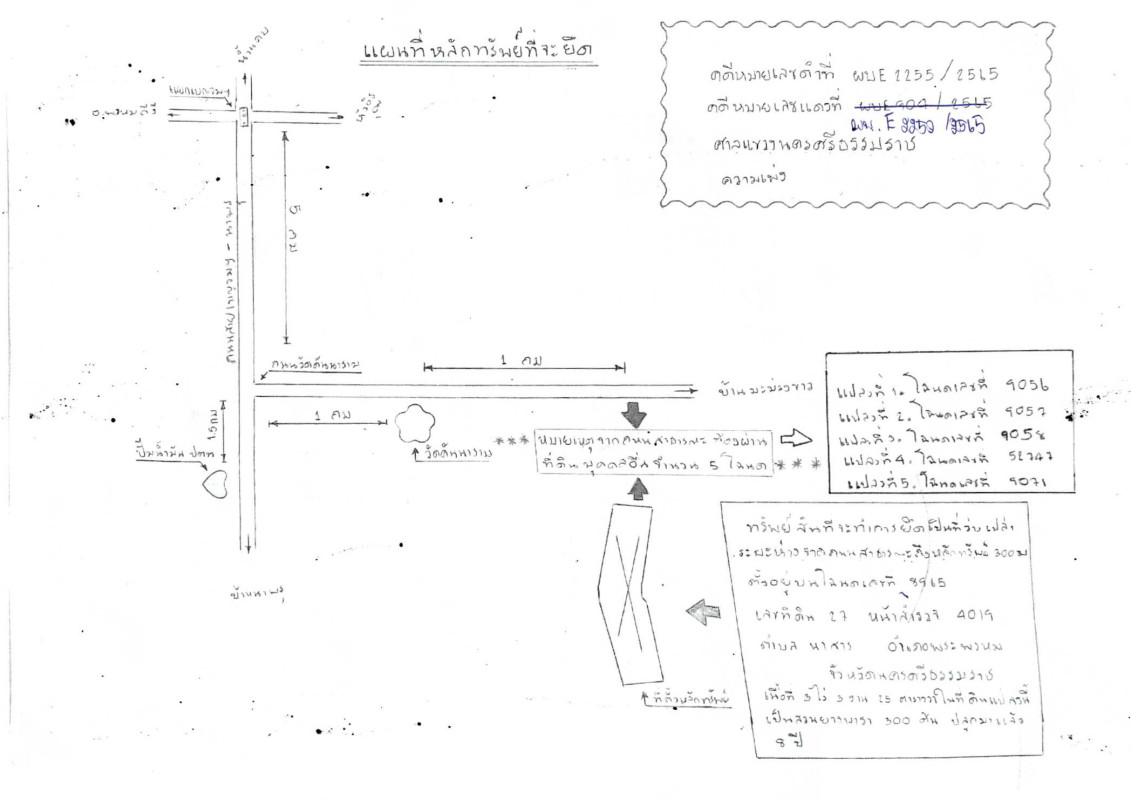 แผนที่หลักทรัพย์ที่จะยึด
คดีหมายเลขดำที่ ผบE 2255/2565
คดีหมายเลขแดงที่ ผบE 909/2565
ผบ. E 2252 /2565
ศาลแขวงนครศรีธรรมราช
ความแพ่ง
แยกเบญจมฯ
อ.พรหมคีรี
5 กม
ถนนสายเบญจมฯ - นาพรุ
ถนนวัดดินนาราม
1 กม
บ้านมะม่วงขาว
1.5 กม
1 กม
ปั๊มน้ำมัน ปตท
วัดดินนาราม
*** หมายเหตุจากถนนสาธารณะ ต้องผ่าน
ที่ดินบุคคลอื่นจำนวน 5 โฉนด ***
แปลงที่ 1. โฉนดเลขที่ 9056
แปลงที่ 2. โฉนดเลขที่ 9057
แปลงที่ 3. โฉนดเลขที่ 9058
แปลงที่ 4. โฉนดเลขที่ 52747
แปลงที่ 5. โฉนดเลขที่ 9071
บ้านนาพรุ
ทรัพย์สินที่จะทำการยึดเป็นที่ว่างเปล่า
ระยะห่างจากถนนสาธารณะถึงหลักทรัพย์ 300 ม
ตั้งอยู่บนโฉนดเลขที่ 8965
เลขที่ดิน 27 หน้าสำรวจ 4019
ตำบล นาสาร อำเภอพระพรหม
จังหวัดนครศรีธรรมราช
เนื้อที่ 5 ไร่ 3 งาน 25 ตารางวาในที่ดินแปลงนี้
เป็นสวนยางพารา 300 ต้น ปลูกมาแล้ว
8 ปี
ที่ตั้งหลักทรัพย์